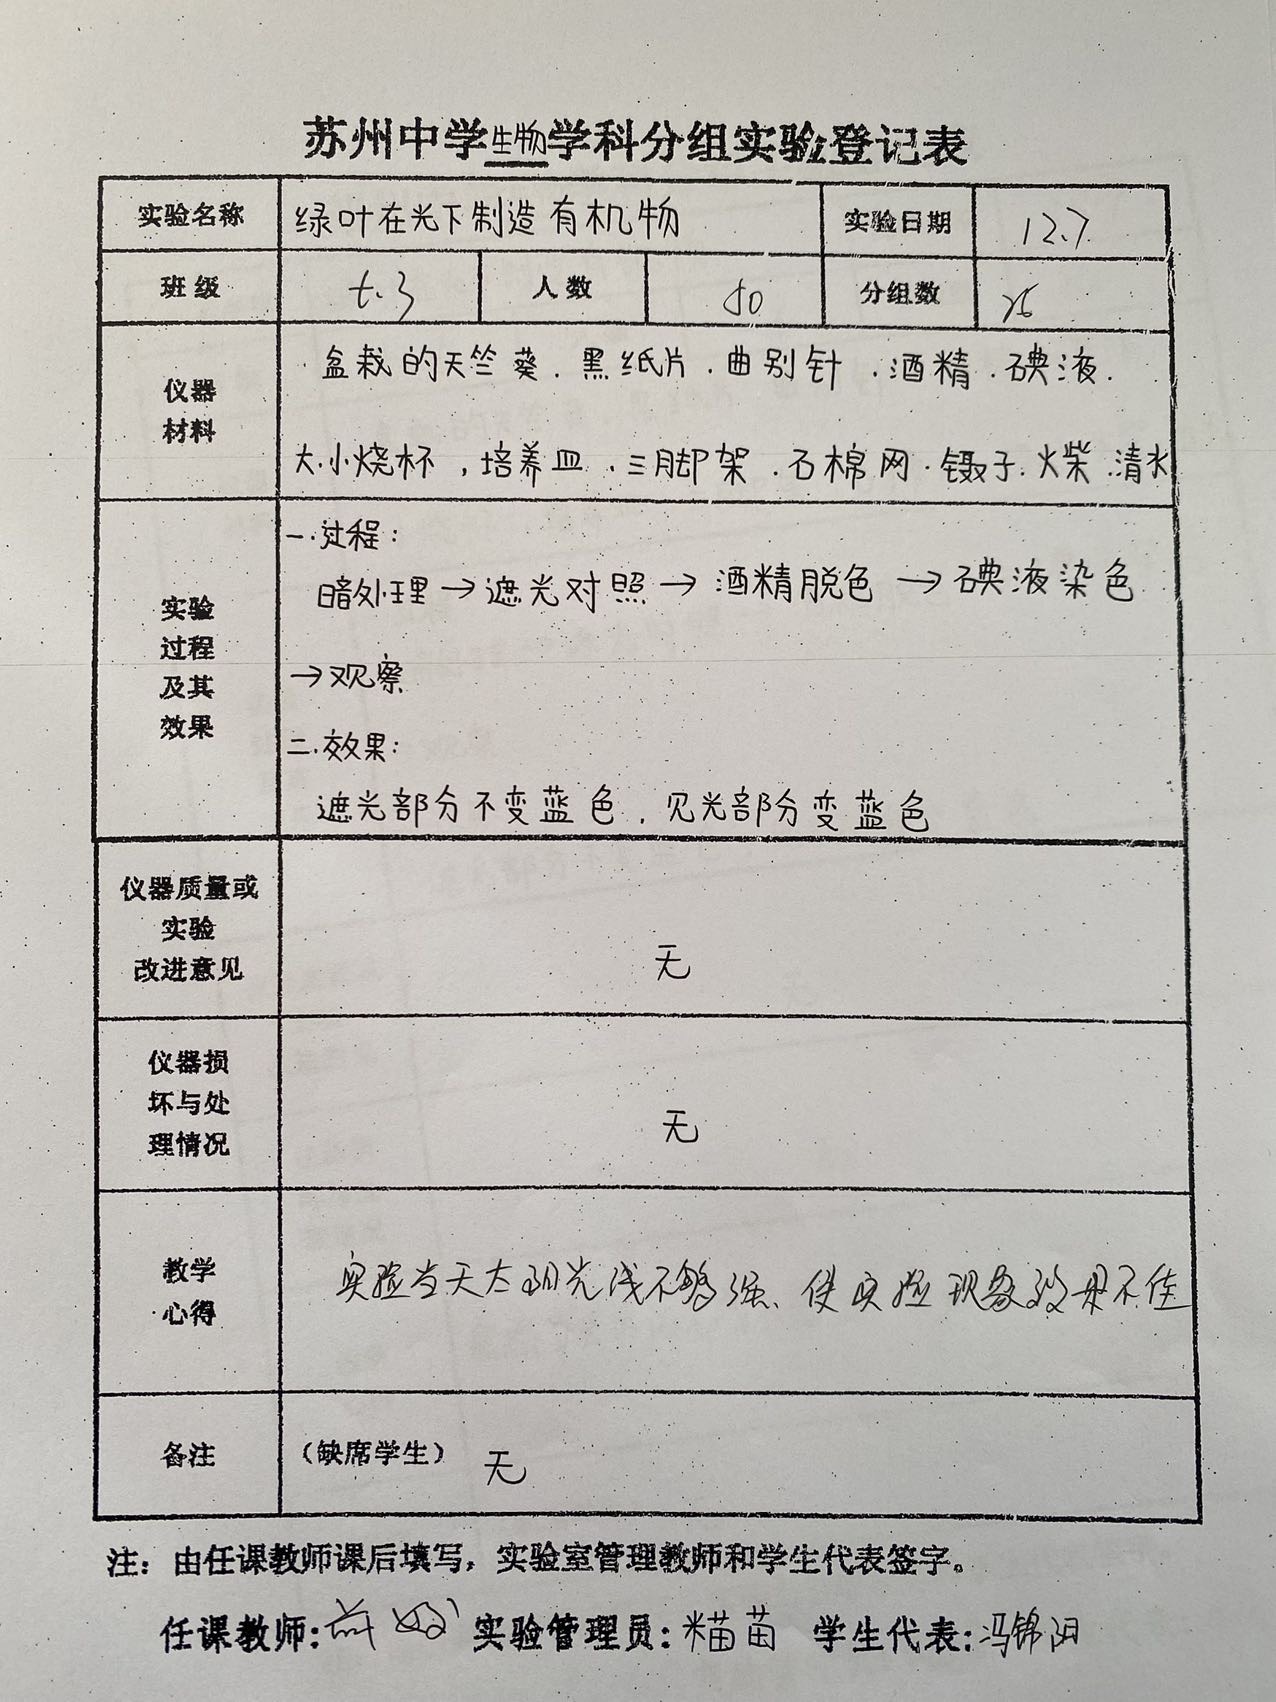 苏州中学生物学科分组实验登记表
实验名称 绿叶在光下制造有机物 实验日期 12.7
班级 七.3 人数 50 分组数 25
仪器材料
盆栽的天竺葵.黑纸片.曲别针.酒精.碘液.
大.小烧杯,培养皿.三脚架.石棉网.镊子.火柴.清水
实验
过程
及其
效果
一.过程:
暗处理→遮光对照→酒精脱色→碘液染色
→观察
二.效果:
遮光部分不变蓝色.见光部分变蓝色
仪器质量或
实验
改进意见
无
仪器损
坏与处
理情况
无
教学
心得
实验当天太阳光线不够强、使实验现象效果不佳
备注 (缺席学生) 无
注:由任课教师课后填写,实验室管理教师和学生代表签字。
任课教师: 实验管理员: 苗 学生代表:冯锦阳